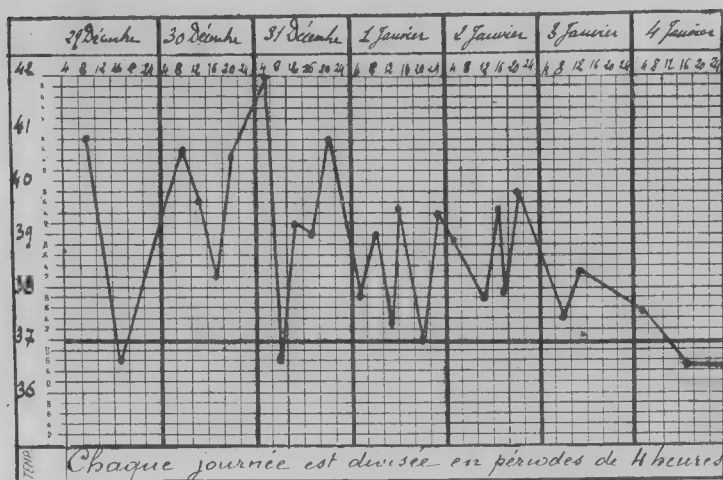 29 Décembre 30 Décembre 31 Décembre 1 Janvier 2 Janvier 3 Janvier 4 Janvier
42 4 8 12 16 20 24 4 8 12 16 20 24 4 8 12 16 20 24 4 8 12 16 20 24 4 8 12 16 20 24 4 8 12 16 20 24 4 8 12 16 20 24
41
40
39
38
37
36
TEMP. Chaque journée est divisée en périodes de 4 heures